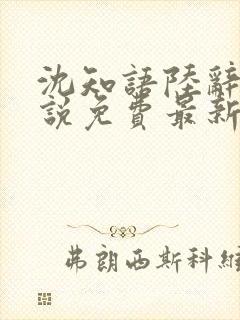 沈知語陸辭
說免費最新
弗朗西斯科維